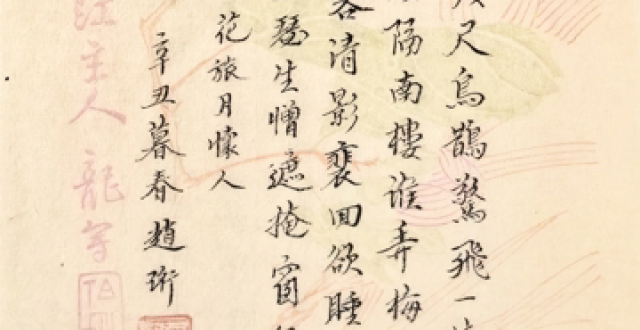 尺烏鵲驚飛一
隔南樓誰弄梅
清影裵回欲睡
瑟生憎遮掩窗
花旅月懷人
辛丑暮春趙珩
江主人龍